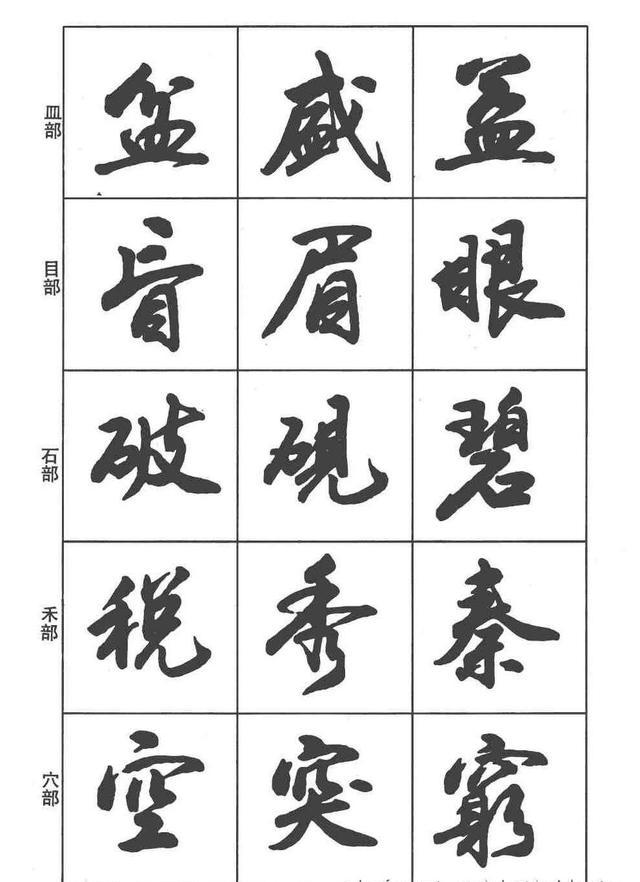 皿部 盆 盛 盖
目部 盲 眉 眼
石部 破 硯 碧
禾部 税 秀 秦
穴部 空 突 窮